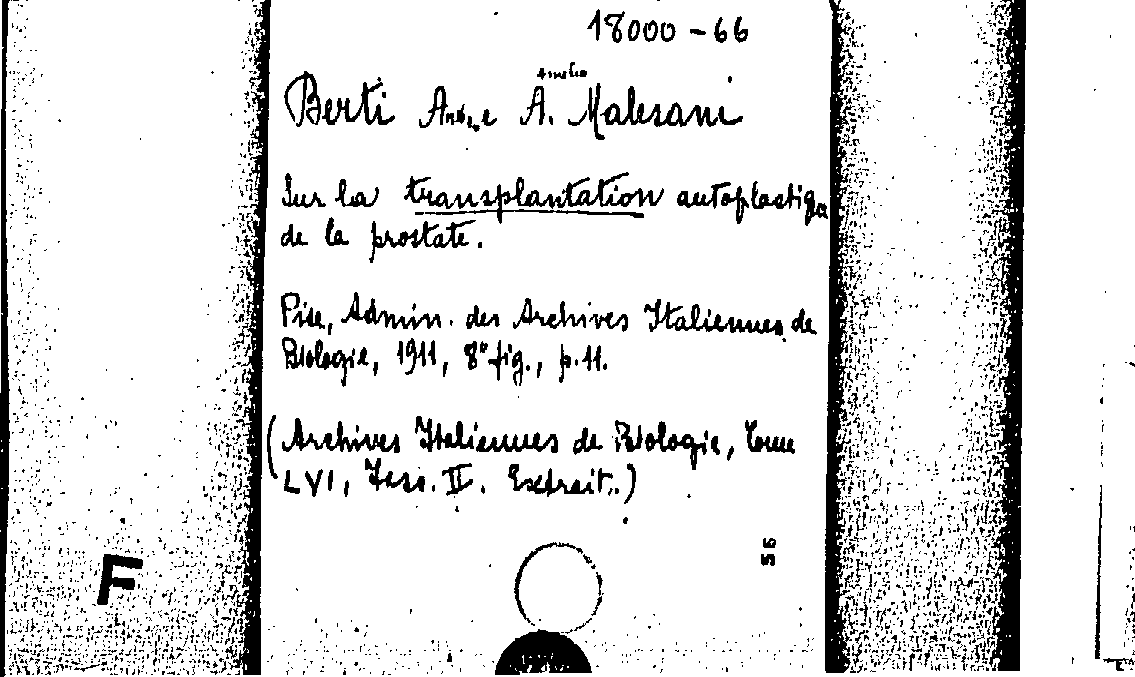 18000-66
Amelio
Berti A. Malesani
Sur la transplantation autoplastiqu
de la prostate.
Pise, Admin. des Archives Italiennes de
Biologie, 1911, 8° fig., p. 11.
(Archives Italiennes de Biologie, Tome
LVI, Fasc. II. Extrait..)
56
F